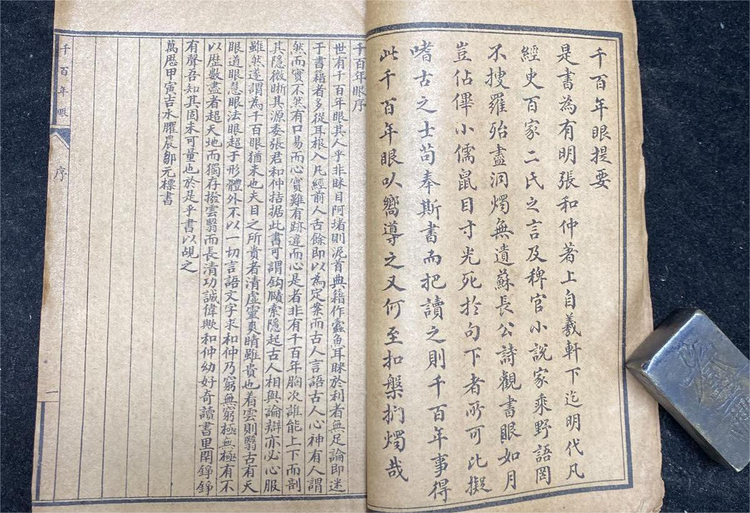 千百年眼提要
是書為有明張和仲著上自羲軒下迄明代凡
經史百家二氏之言及稗官小說家乘野語罔
不搜羅殆盡洞燭無遺蘇長公詩觀書眼如月
豈佔嗶小儒鼠目寸光死於句下者所可比擬
嗜古之士苟奉斯書而把讀之則千百年事得
此千百年眼以嚮導之又何至扣槃捫燭哉
千百年眼序
世有千百年眼其人乎非眯目阿堵則泥首典籍作蠹魚耳眯於利者無足論即迷
于書籍者多從耳根入凡經前人古餘即以為定案而古人言語古人心神有人謂
然而實不然有口易而心實難有跡違而心是者非有千百年胸次誰能上下而剖
其隱微晰其源委張君和仲拮据此書可謂鈎賾索隱起古人相與論辯亦必心服
雖然遂謂為千百眼猶未也夫目之所貴者清虛靈爽睛雖貴也着雲則翳古有天
眼道眼慧眼法眼超于形體外不以一切言語文字求和仲乃窮無窮極無極有不
以歷數盡者超天地而獨存撥雲翳而長清功誠偉歟和仲幼好奇讀書里閈錚錚
有聲吾知其固未可量也於是乎書以覘之
萬歷甲寅吉水臞農鄒元標書
千百年眼
序
一